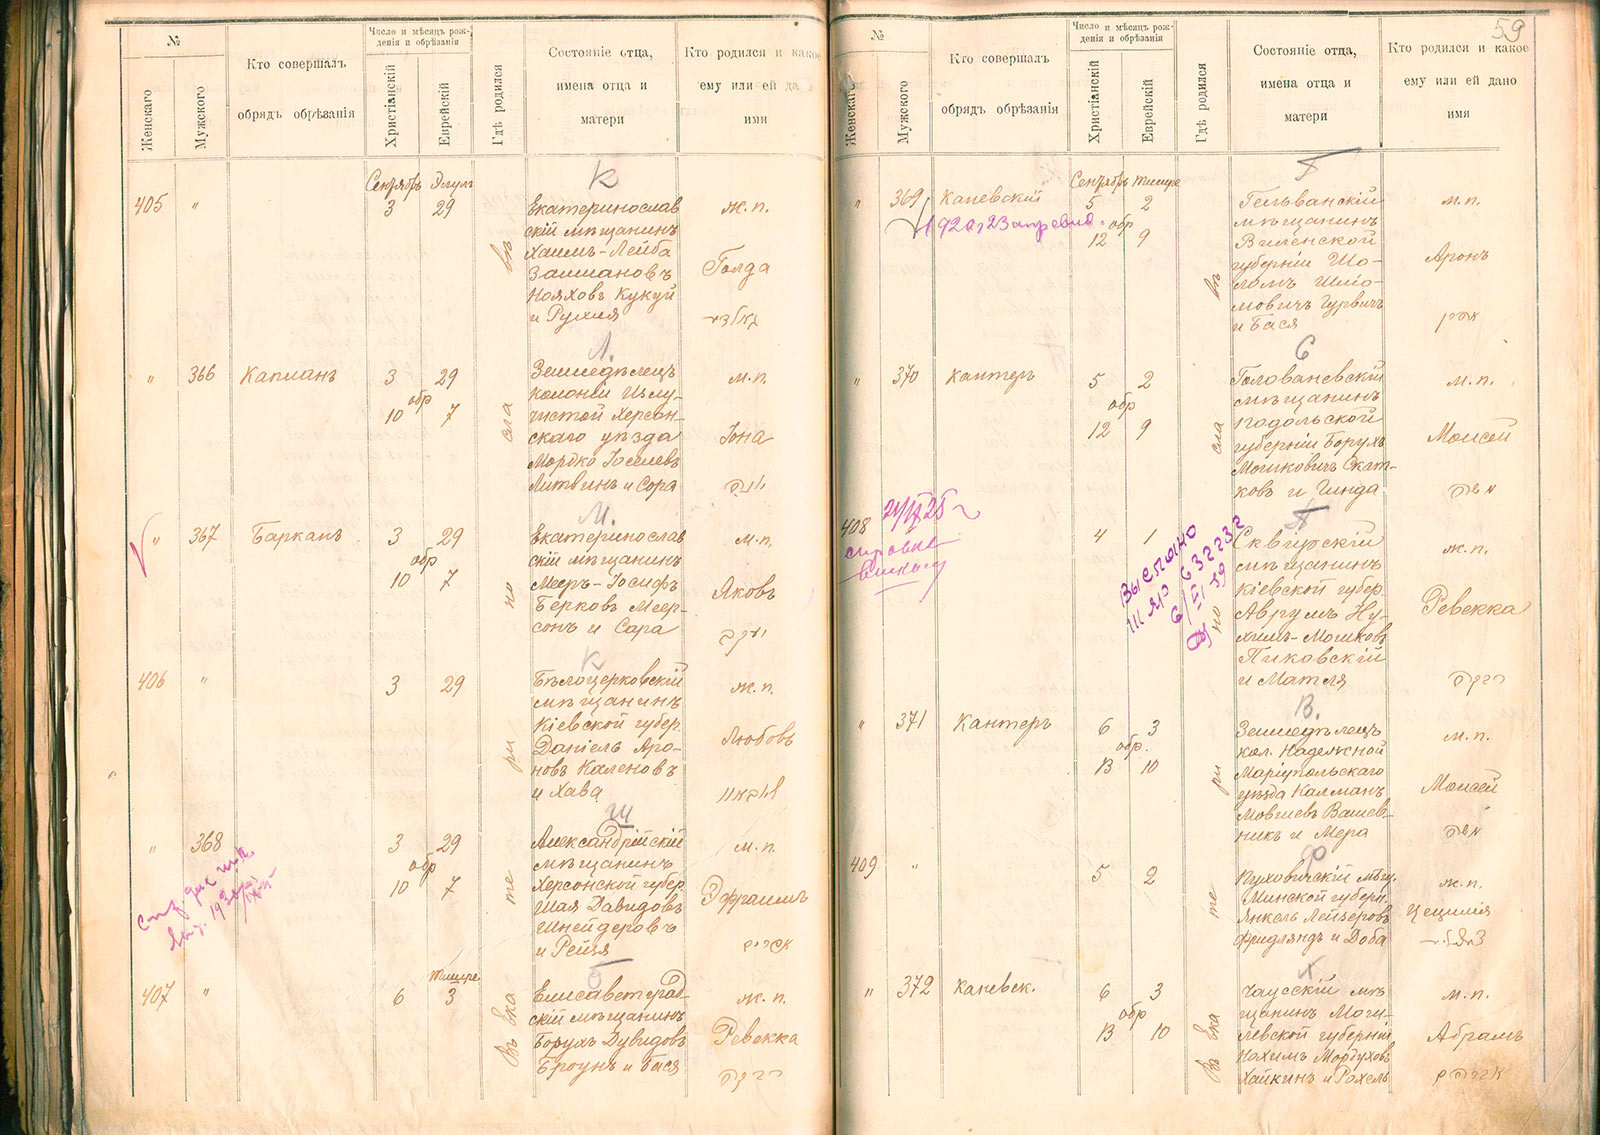 №
Женскаго
Мужского
Кто совершалъ
обрядъ обрѣзанія
Число и мѣсяцъ рож-
денія и обрѣзанія
Христіанскій
Еврейскій
Гдѣ родился
Состояніе отца,
имена отца и
матери
Кто родился и какое
ему или ей да
ими
Сентябрь Элулъ
К
405 " 3 29
Екатеринослав
скій мѣщанинъ
Хаимъ-Лейба
Залмановъ
Нояховъ Кукуй
и Рухля
ж. п.
Голда
Л.
" 366 Капланъ 3 29
обр
10 7
Земледѣлецъ
колоніи Излу-
чистой Херсон-
скаго уѣзда
Мордко Іоселевъ
Литвинъ и Сора
м. п.
Іона
יונה
М.
" 367 Барканъ 3 29
обр
10 7
Екатеринослав
скій мѣщанинъ
Мееръ-Іосифъ
Берковъ Меер-
сонъ и Сара
м. п.
Яковъ
יעקב
К
406 " 3 29
Бѣлоцерковскій
мѣщанинъ
Кіевской губер.
Даніель Аро-
новъ Каленовъ
и Хава
ж. п.
Любовь
Ш
" 368 3 29
обр
10 7
Александрійскій
мѣщанинъ
Херсонской губер.
Шая Давидовъ
Шнейдеровъ
и Рейзя
м. п.
Эфраимъ
אפרים
Тишре
Б
407 " 6 3
Елисаветград-
скій мѣщанинъ
Борухъ Дувидовъ
Броунъ и Бася
ж. п.
Ревекка
רבקה
Въ Екатеринославѣ
59
№
Женскаго
Мужского
Кто совершалъ
обрядъ обрѣзанія
Число и мѣсяцъ рож-
денія и обрѣзанія
Христіанскій
Еврейскій
Гдѣ родился
Состояніе отца,
имена отца и
матери
Кто родился и какое
ему или ей дано
имя
Сентябрь Тишре
Г
" 369 Каневскій 5 2
обр
12 9
Гельванскій
мѣщанинъ
Виленской
губерніи Шо-
ломъ Шліо-
мовичъ Гурвичъ
и Бася
м. п.
Аронъ
אהרן
С
" 370 Кантеръ 5 2
обр
12 9
Голованевскій
мѣщанинъ
Подольской
губерніи Борухъ
Мошковичъ Скат-
ковъ и Гинда
м. п.
Моисей
משה
П
408 4 1
справка
Выслано
Сквирскій
мѣщанинъ
Кіевской губер.
Аврумъ Ну-
химъ-Мошковъ
Пиковскій
и Матля
ж. п.
Ревекка
רבקה
В.
" 371 Кантеръ 6 3
обр.
13 10
Земледѣлецъ
кол. Надежной
Маріупольскаго
уѣзда Калманъ
Мовшевъ Вашев-
никъ и Мера
м. п.
Моисей
משה
Ф
409 " 5 2
Пуховичскій мѣщ.
Минской губерн.
Янкель Лейзеровъ
Фридляндъ и Доба
ж. п.
Цецилія
Х
" 372 Каневск. 6 3
обр
13 10
Чаусскій мѣ-
щанинъ Моги-
левской губерніи
Нахимъ Мордуховъ
Хайкинъ и Рохель
м. п.
Абрамъ
אברהם
Въ Екатеринославѣ